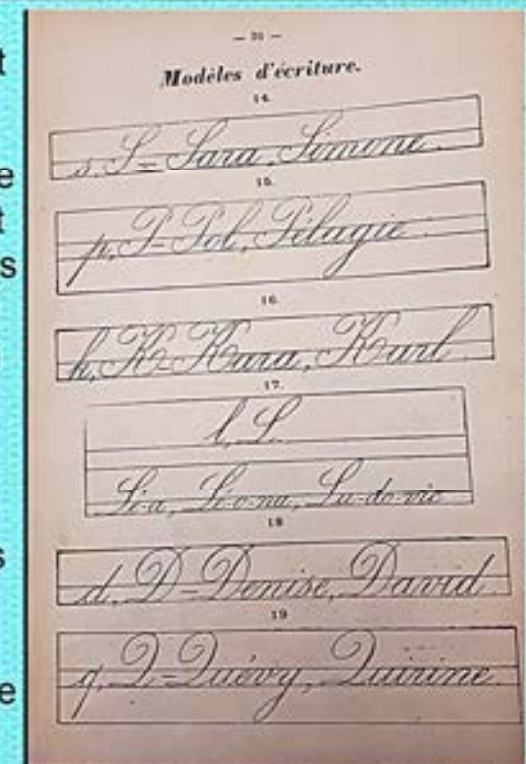 Modèles d'écriture.
14.
s, S = Sara, Simone.
15.
p, P = Pol, Pélagie.
16.
k, K = Kara, Karl.
17.
l, L
Li-a, Lé-o-na, Lu-do-vic
18
d, D = Denise, David.
19
q, Q = Quévy, Quirine.